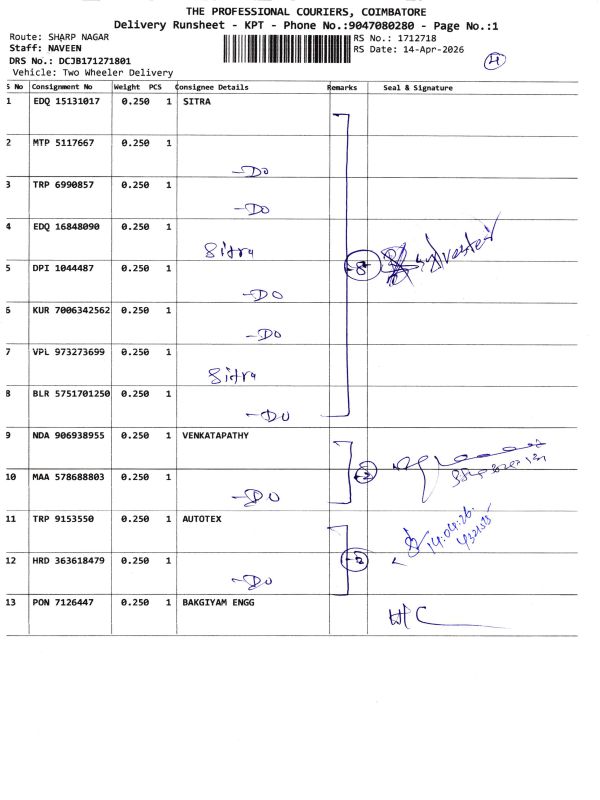 THE PROFESSIONAL COURIERS, COIMBATORE
Delivery Runsheet - KPT - Phone No.:9047080280 - Page No.:1
Route: SHARP NAGAR
RS No.: 1712718
Staff: NAVEEN
RS Date: 14-Apr-2026
4
DRS No.: DCJB171271801
Vehicle: Two Wheeler Delivery
S No Consignment No Weight PCS Consignee Details Remarks Seal & Signature
1 EDQ 15131017 0.250 1 SITRA
2 MTP 5117667 0.250 1 -Do
3 TRP 6990857 0.250 1 -Do
4 EDQ 16848090 0.250 1 Sitra
-8- Sylvester
5 DPI 1044487 0.250 1 -Do
6 KUR 7006342562 0.250 1 -Do
7 VPL 973273699 0.250 1 Sitra
8 BLR 5751701250 0.250 1 -Do
9 NDA 906938955 0.250 1 VENKATAPATHY
-2-
10 MAA 578688803 0.250 1 -Do
11 TRP 9153550 0.250 1 AUTOTEX
14.04.26.
12 HRD 363618479 0.250 1 -Do
-2-
13 PON 7126447 0.250 1 BAKGIYAM ENGG